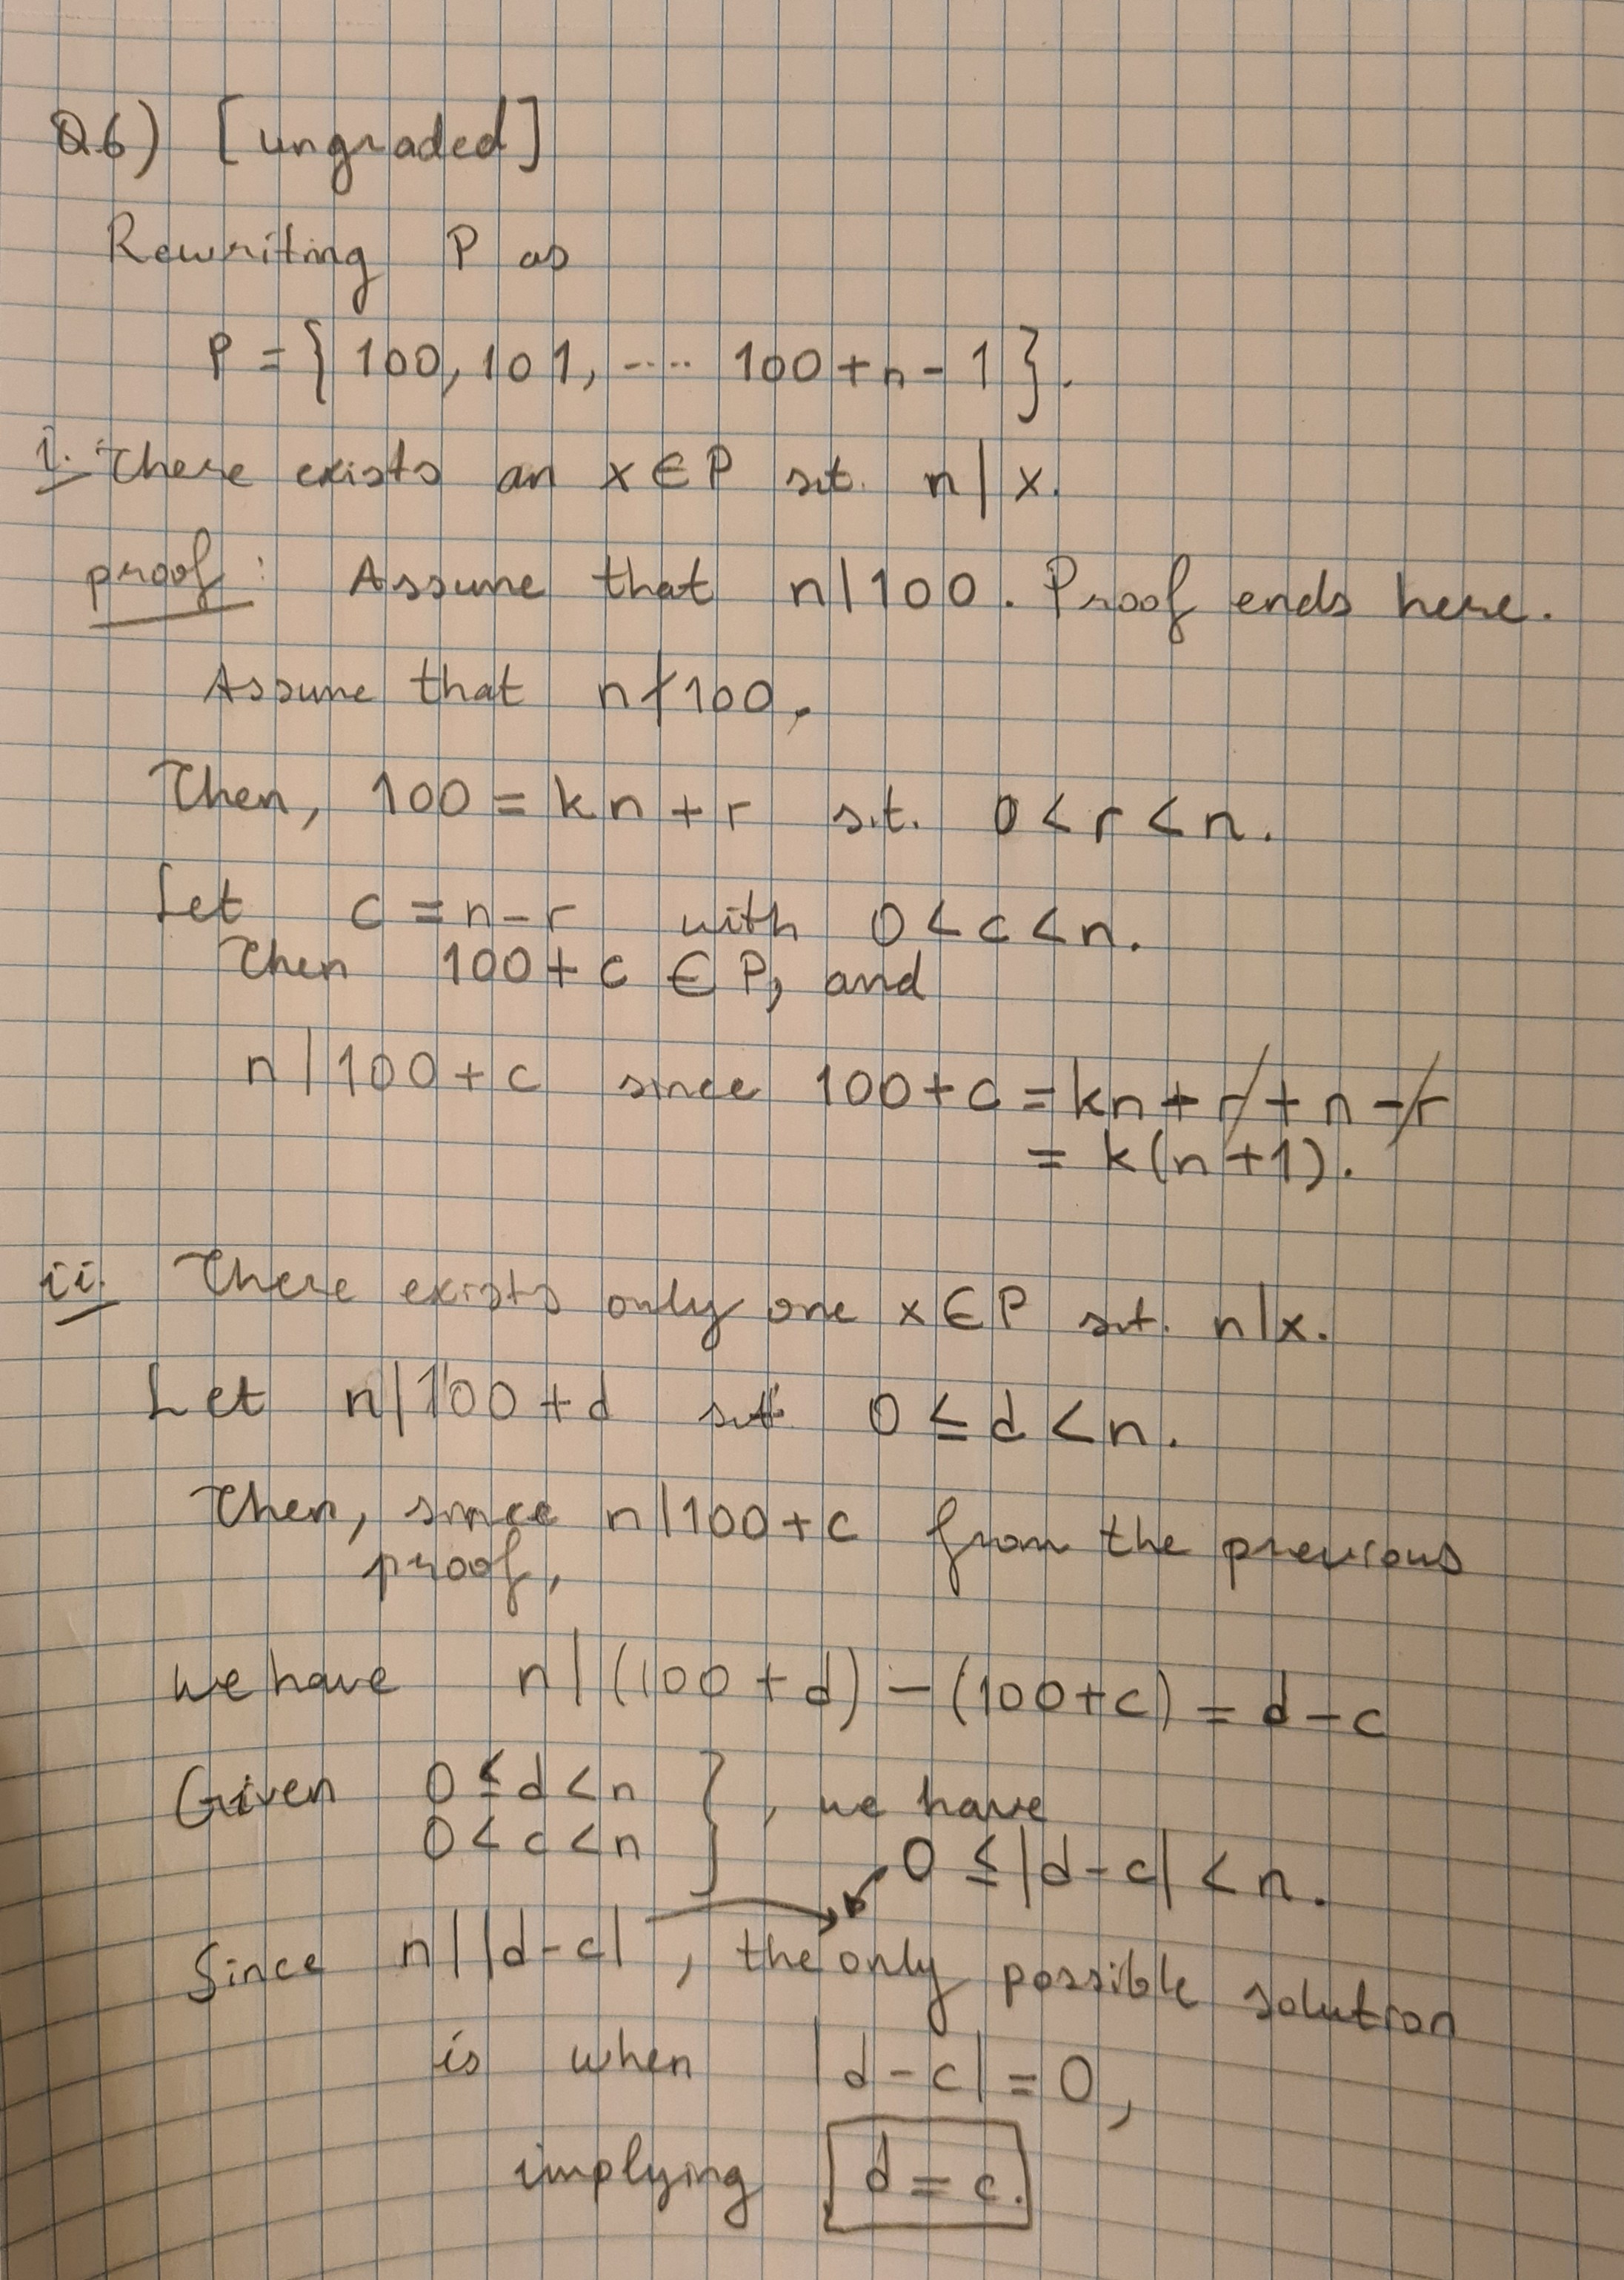 Q6) [ungraded]
Rewriting P as
P = { 100, 101, ---- 100+n-1 }.
i. There exists an x ∈ P s.t. n | x.
proof: Assume that n | 100. Proof ends here.
Assume that n ∤ 100.
Then, 100 = kn + r s.t. 0 < r < n.
Let c = n - r with 0 < c < n.
Then 100 + c ∈ P, and
n | 100 + c since 100 + c = kn + r + n - r
= k(n+1).
ii. There exists only one x ∈ P s.t. n | x.
Let n | 100 + d s.t. 0 ≤ d < n.
Then, since n | 100 + c from the previous
proof,
we have n | (100 + d) - (100 + c) = d - c
Given 0 ≤ d < n
0 < c < n } , we have
0 ≤ |d - c| < n.
Since n | |d - c| , the only possible solution
is when |d - c| = 0,
implying d = c.